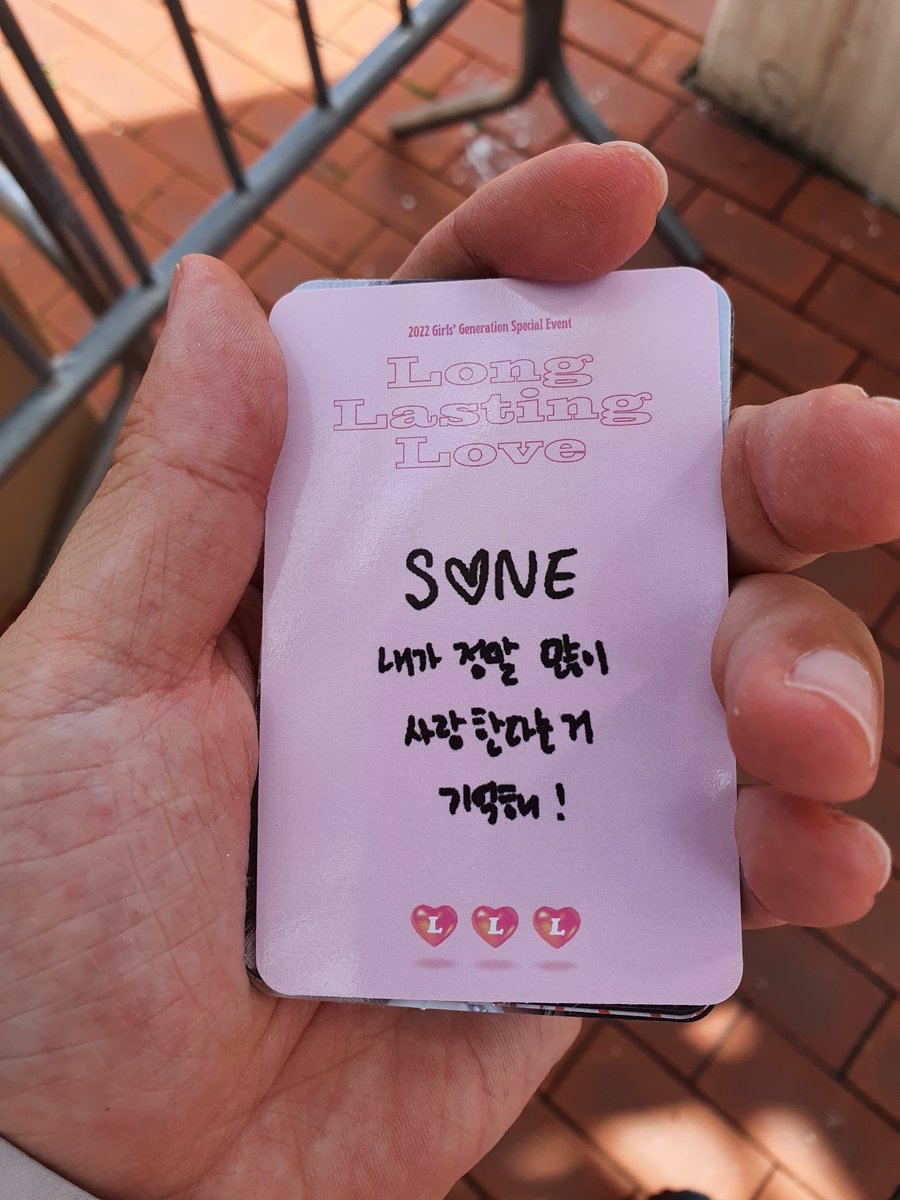 2022 Girls' Generation Special Event
Long
Lasting
Love
S♡NE
내가 정말 많이
사랑한다는거
기억해!
L L L